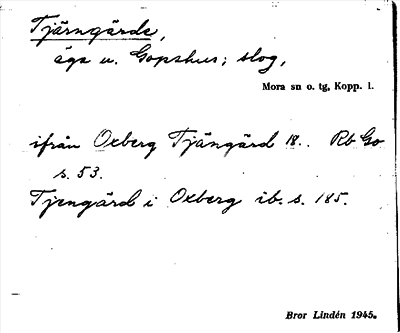 Tjärngärde,
äga u. Gopshus; slog,
Mora sn o. tg, Kopp. l.
ifrån Oxberg Tjängärd 18.. Rb Go
s. 53.
Tjengärd i Oxberg ib. s. 185.
Bror Lindén 1945.